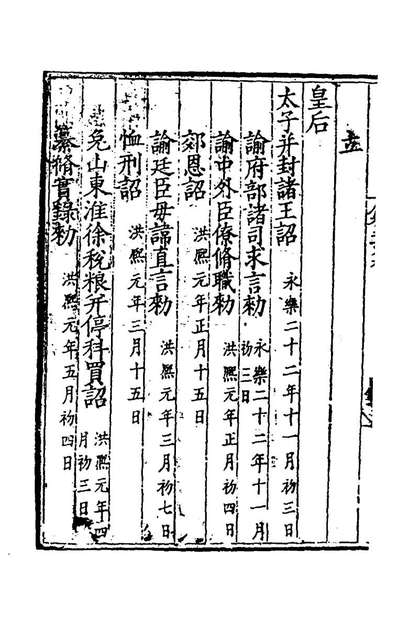 皇后
太子并封諸王詔 永樂二十二年十一月初三日
諭府部諸司求言勑 永樂二十二年十一月初三日
諭中外臣僚脩職勑 洪熙元年正月初四日
郊恩詔 洪熙元年正月十五日
諭廷臣毋諱直言勑 洪熙元年三月初七日
恤刑詔 洪熙元年三月十五日
免山東淮徐稅粮并停科買詔 洪熙元年四月初三日
纂脩實錄勑 洪熙元年五月初四日